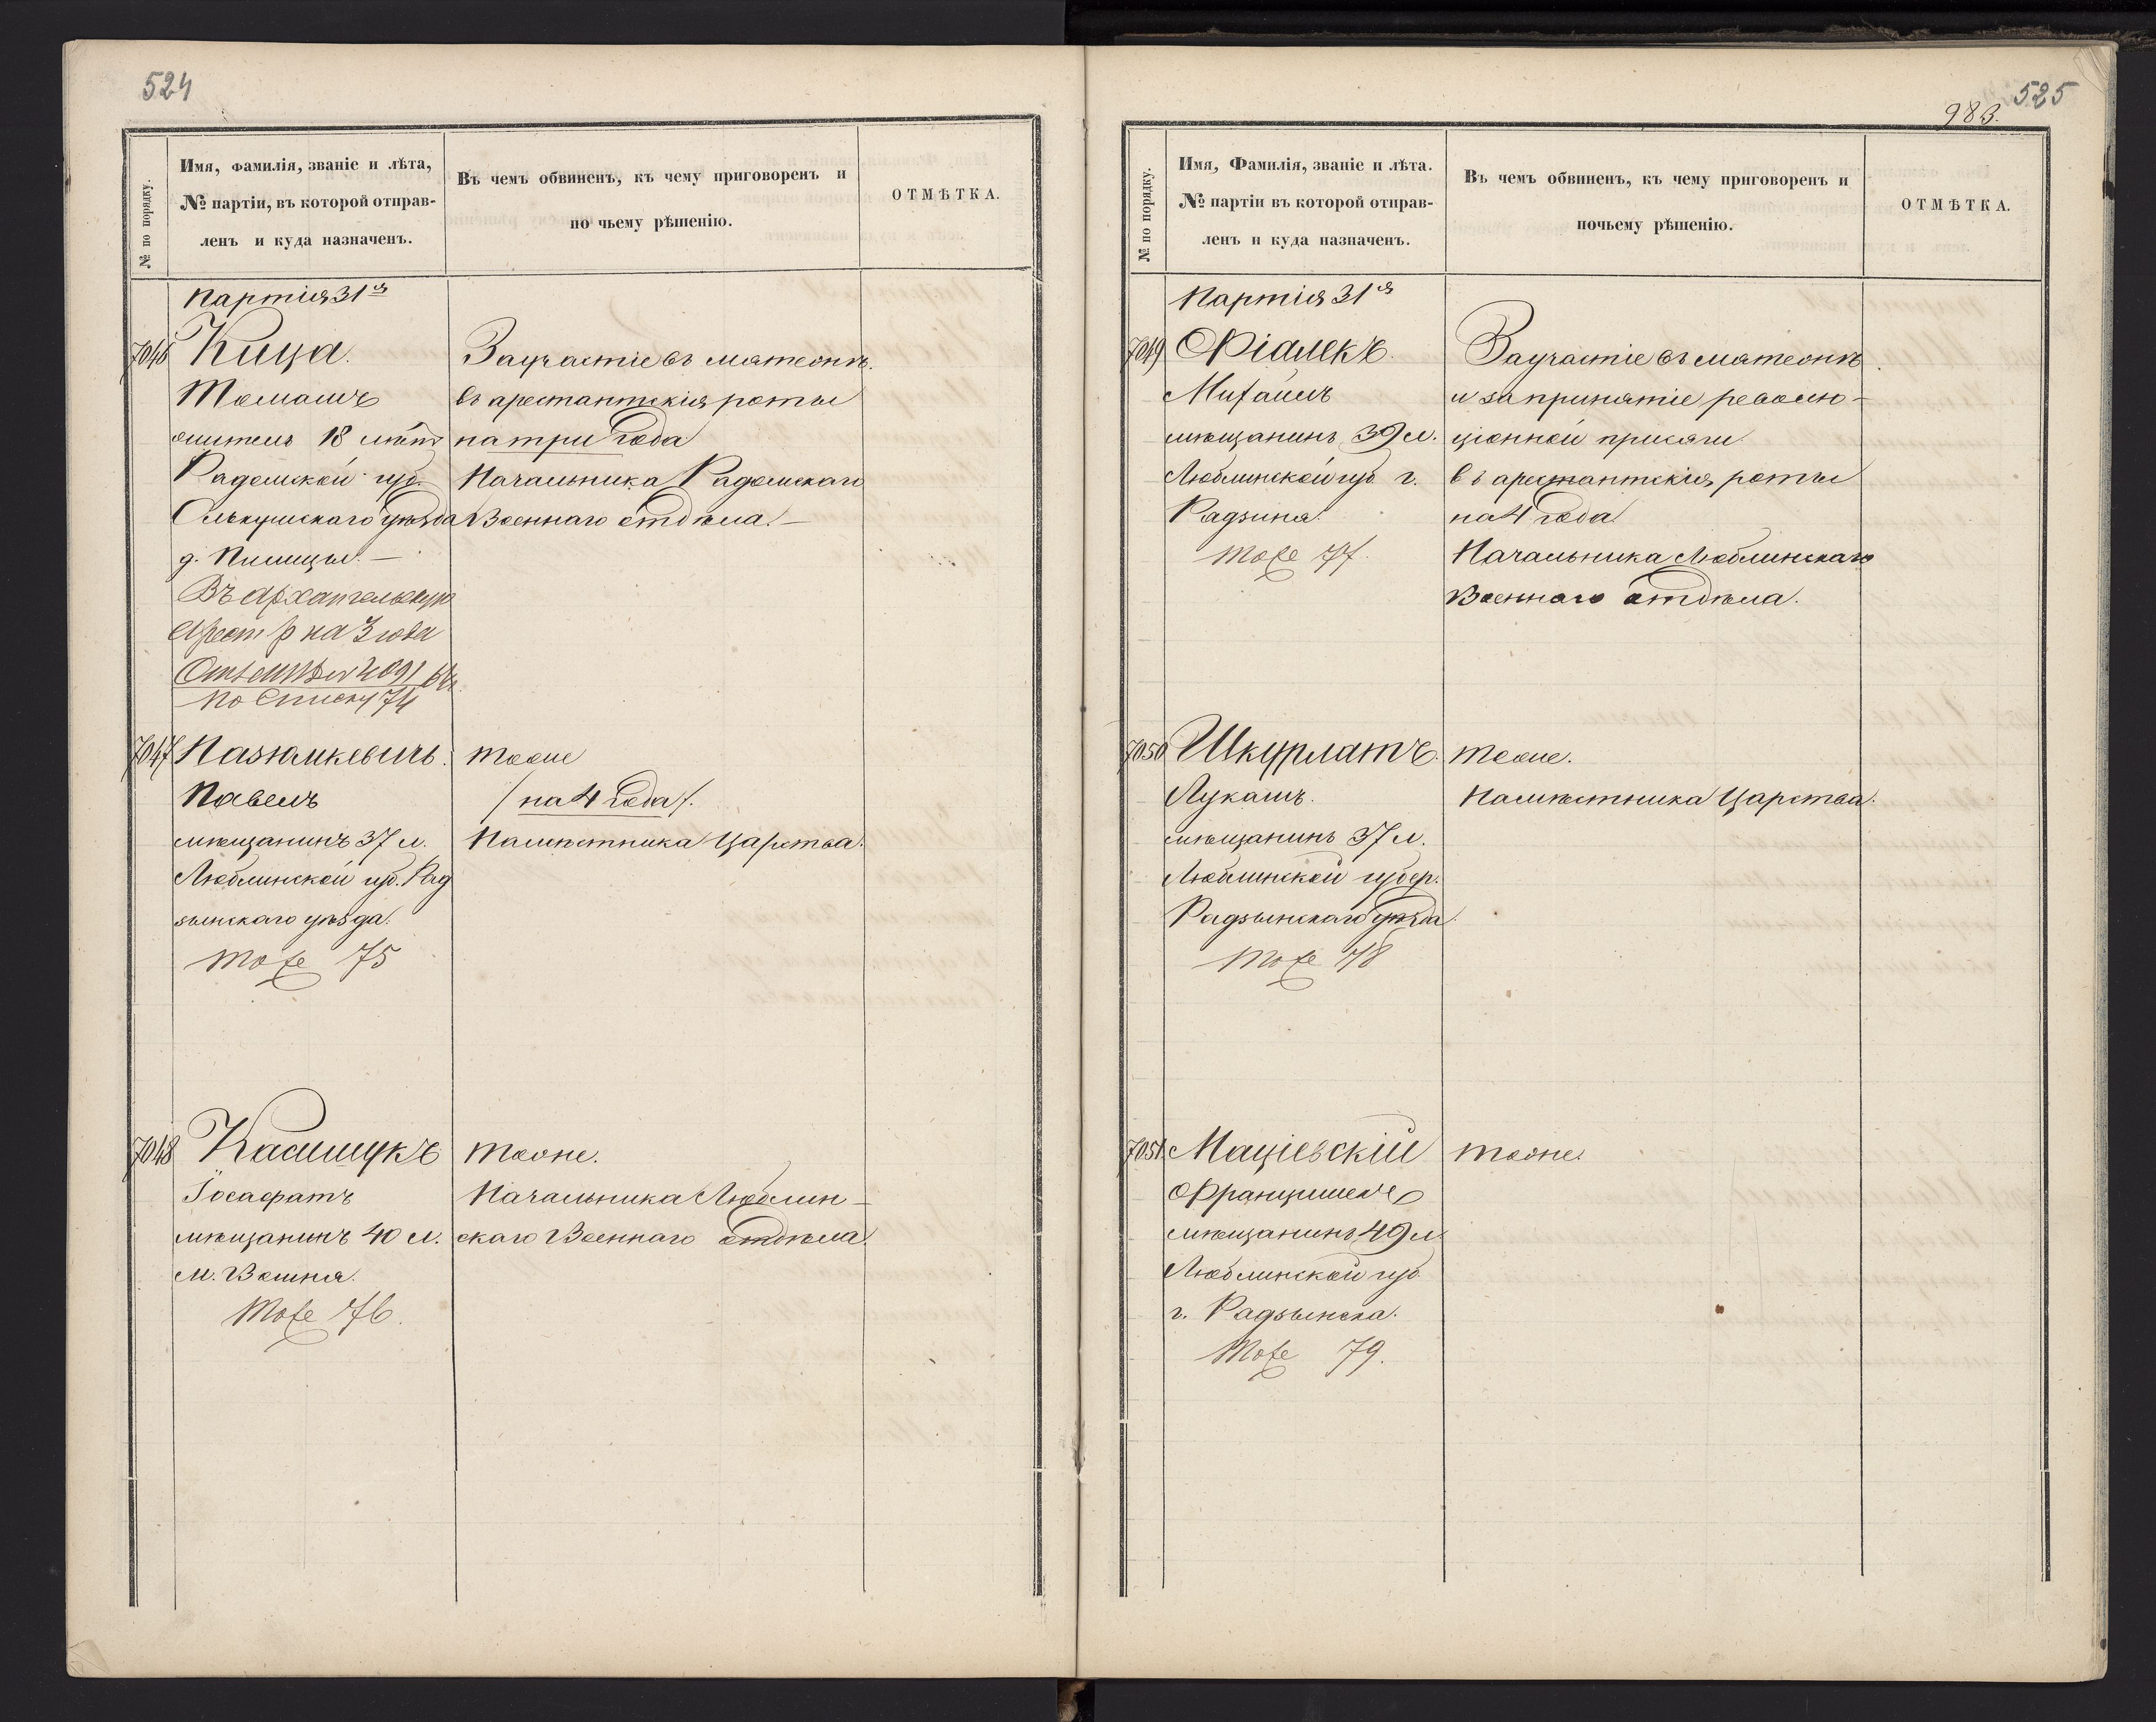 524
№ по порядку.
Имя, Фамилія, званіе и лѣта,
№ партіи, въ которой отправ-
ленъ и куда назначенъ.
Въ чемъ обвиненъ, къ чему приговоренъ и
по чьему рѣшенію.
ОТМѢТКА.
Партія 31я
7046
Кица.
Томашъ
житель 18 лѣтъ
Радомской губ.
Олькушскаго уѣзда
д. Пилицы.—
Въ Архангельскую
Арест. р на 3 года
По списку 74
За участіе въ мятежѣ.
въ арестантскія роты
на три года
Начальника Радомскаго
Военнаго отдѣла.—
7047
Пазюлкевичъ.
Павелъ
мѣщанинъ 37 л.
Люблинской губ. Рад
зынскаго уѣзда.
тоже 75
тоже
/на 4 года/.
Намѣстника Царства.
7048
Касищукъ
Іосафатъ
мѣщанинъ 40 л.
м. Вошня.
тоже 76.
тоже.
Начальника Люблин-
скаго Военнаго отдѣла.
525
983.
№ по порядку.
Имя, Фамилія, званіе и лѣта.
№ партіи въ которой отправ-
ленъ и куда назначенъ.
Въ чемъ обвиненъ, къ чему приговоренъ и
почьему рѣшенію.
ОТМѢТКА.
Партія 31я
7049
Фіалекъ.
Михаилъ
мѣщанинъ 39 л.
Люблинской губ г.
Радзина.
тоже 77.
За участіе въ мятежѣ
и за принятіе револю-
ціонной присяги
въ арестантскія роты
на 4 года.
Начальника Люблинскаго
Военнаго отдѣла.
7050
Шкурлатъ.
Лукашъ.
мѣщанинъ 37 л.
Люблинской губер.
Радзынскаго уѣзда.
тоже 78
тоже.
Намѣстника Царства.
7051
Маціевскій
Францишекъ
мѣщанинъ 49 л.
Люблинской губ
г. Радзынска.
тоже 79.
тоже.